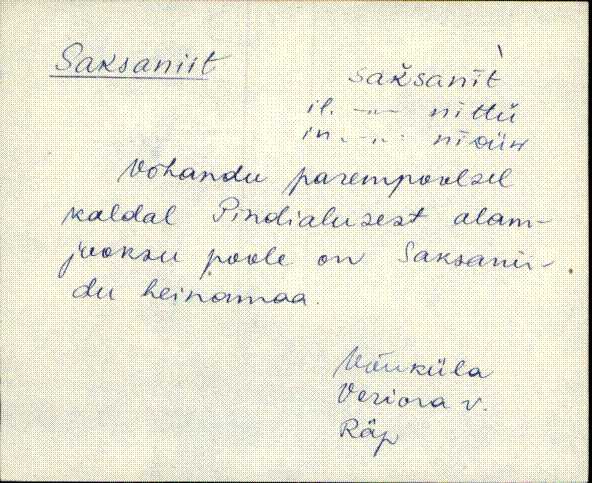 Saksaniit
sakšanìt
il. -"- nittü
in. -"- niđün
Võhandu parempoolsel
kaldal Pindialusest alam-
jooksu poole on Saksanii-
du heinamaa.
Võuküla
Veriora v.
Räp